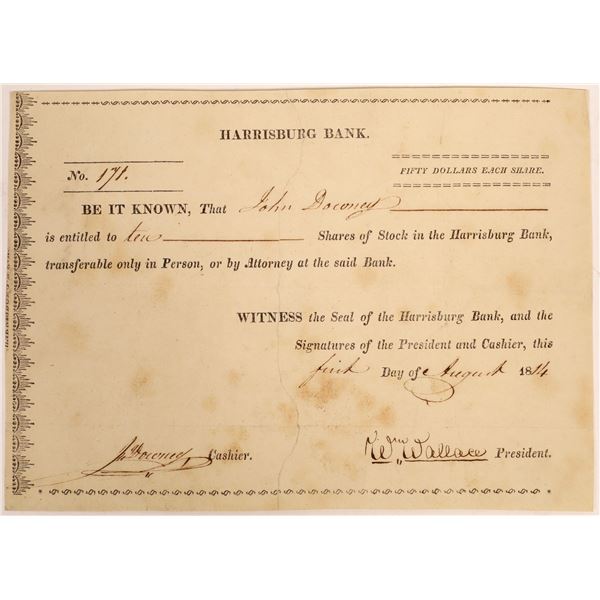 HARRISBURG BANK.
No. 171.
FIFTY DOLLARS EACH SHARE.
BE IT KNOWN, That John Downey
is entitled to ten Shares of Stock in the Harrisburg Bank,
transferable only in Person, or by Attorney at the said Bank.
WITNESS the Seal of the Harrisburg Bank, and the
Signatures of the President and Cashier, this
first Day of August 1814
Jn Downey Cashier.
Wm Wallace President.